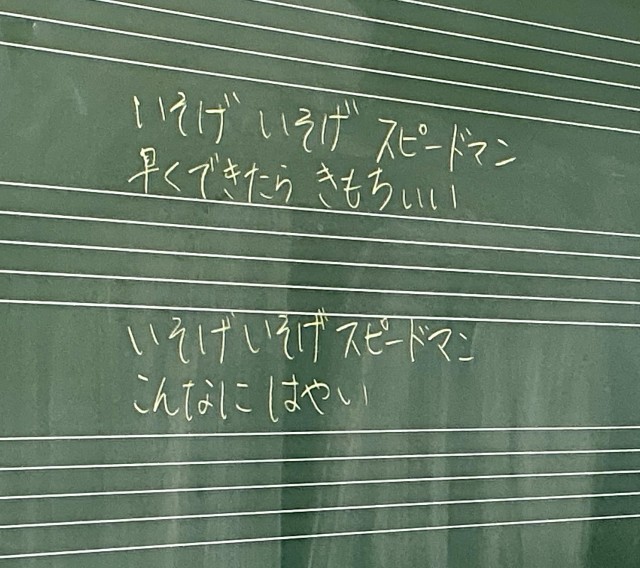 いそげ いそげ スピードマン
早くできたら きもちいい
いそげいそげスピードマン
こんなに はやい